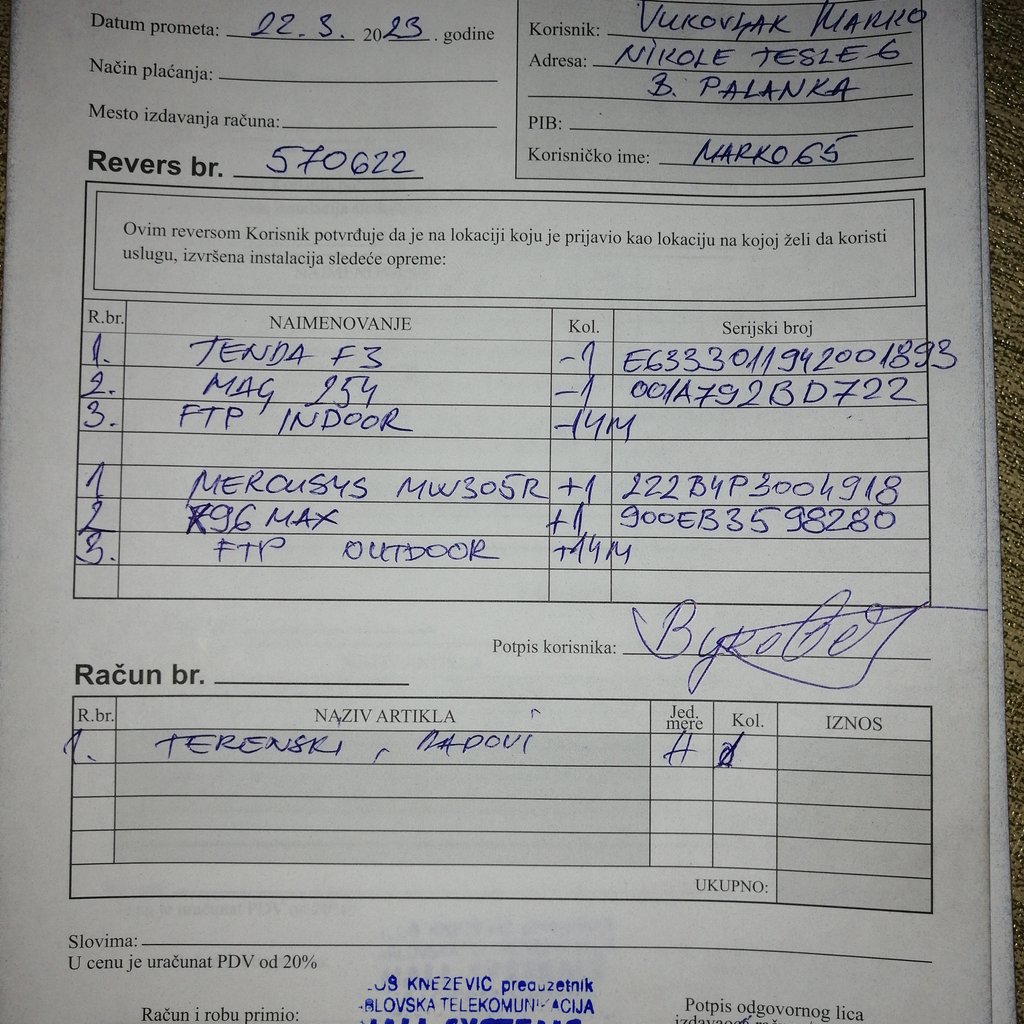 Datum prometa: 22. 3. 2023. godine
Način plaćanja:
Mesto izdavanja računa:
Revers br. 570622
Korisnik: VUKOVLJAK MARKO
Adresa: NIKOLE TESLE 6
B. PALANKA
PIB:
Korisničko ime: MARKO65
Ovim reversom Korisnik potvrđuje da je na lokaciji koju je prijavio kao lokaciju na kojoj želi da koristi
uslugu, izvršena instalacija sledeće opreme:
R.br. NAIMENOVANJE Kol. Serijski broj
1. TENDA F3 -1 E6333011942001893
2. MAG 254 -1 001A792BD722
3. FTP INDOOR -14M
1 MERCUSYS MW305R +1 222B4P3004918
2 X96 MAX +1 900EB3598280
3. FTP OUTDOOR +14M
Potpis korisnika:
Račun br.
R.br. NAZIV ARTIKLA Jed. mere Kol. IZNOS
1. TERENSKI RADOVI H
UKUPNO:
Slovima:
U cenu je uračunat PDV od 20%
KNEZEVIC preduzetnik
TELEKOMUNIKACIJA
Račun i robu primio:
Potpis odgovornog lica